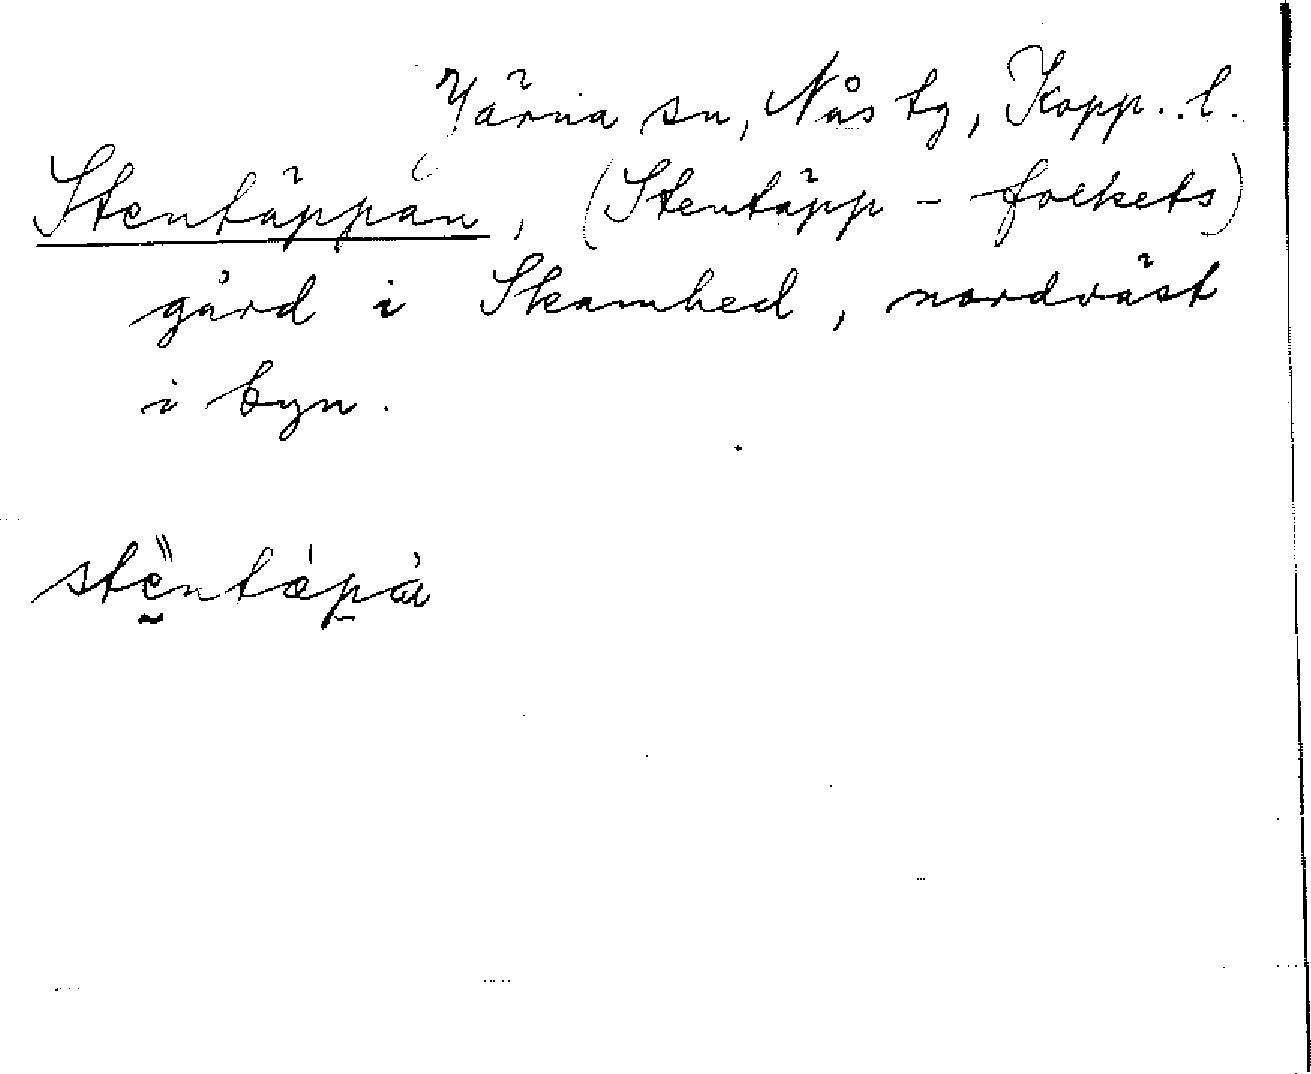 Järna sn, Nås tg, Kopp. l.
Stentäppan, (Stentäpp-folkets)
gård i Skamhed, nordväst
i byn.